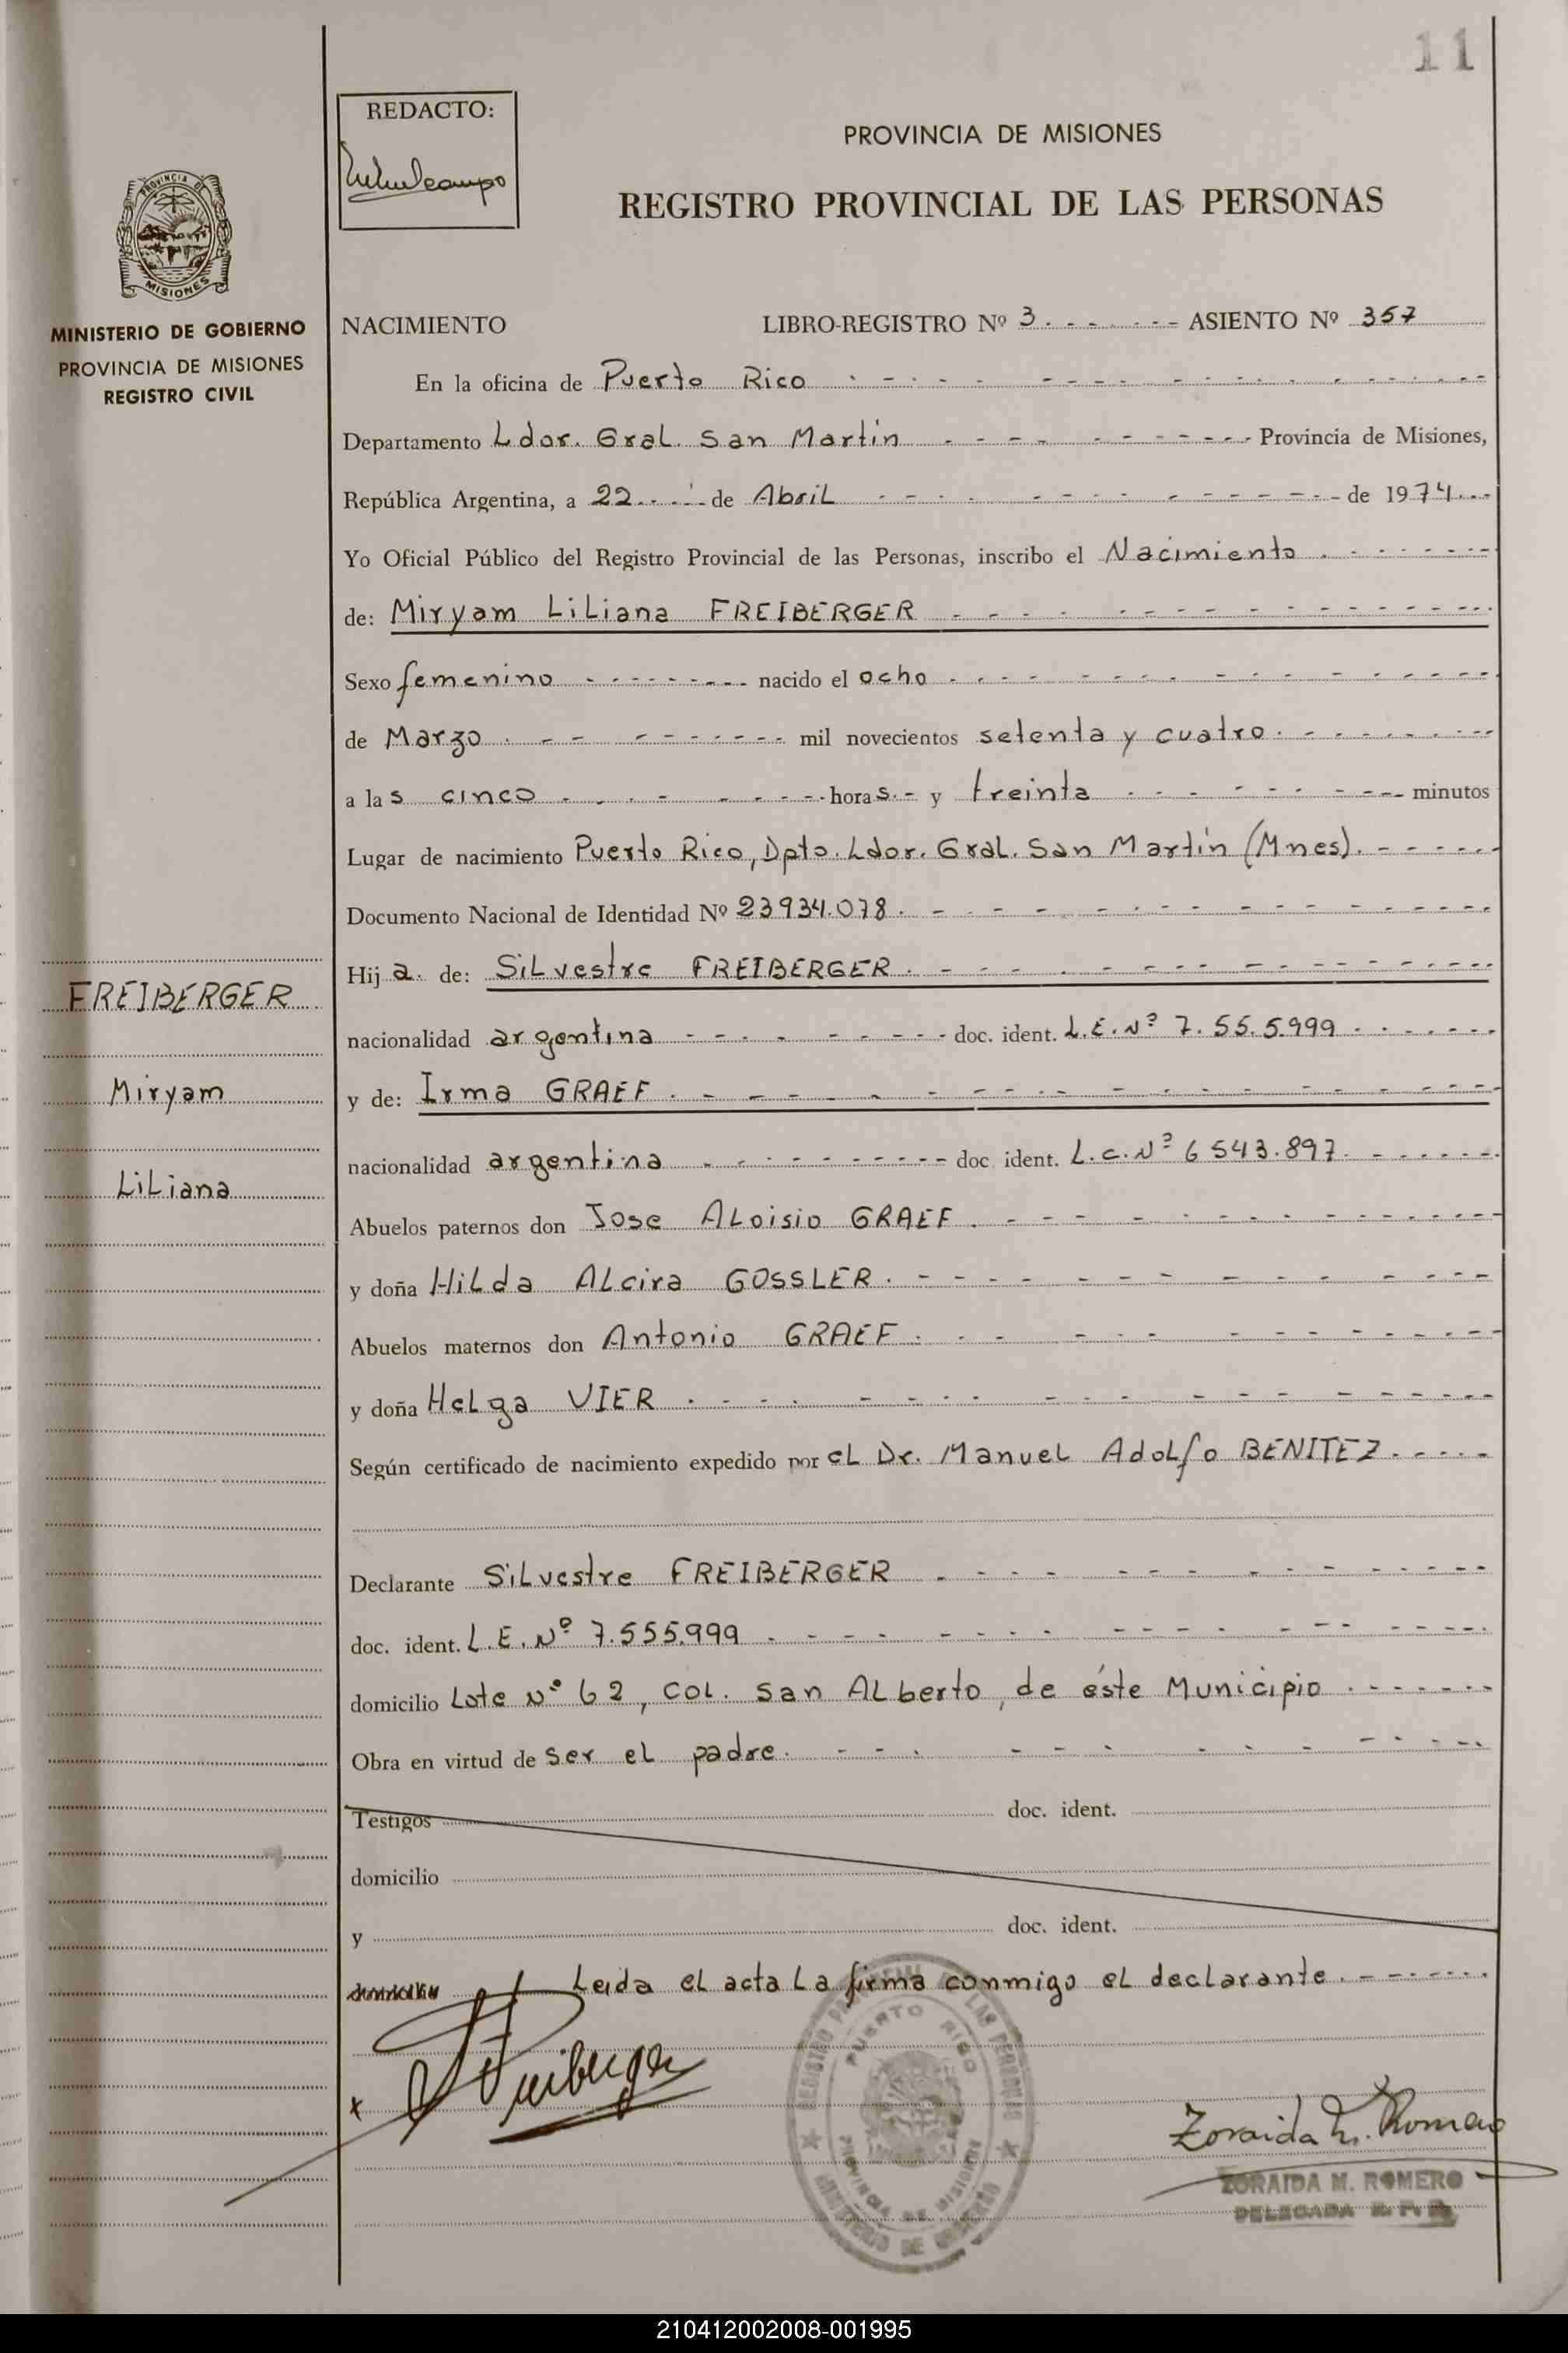 11
REDACTO:
PROVINCIA DE MISIONES
REGISTRO PROVINCIAL DE LAS PERSONAS
PROVINCIA DE
MISIONES
MINISTERIO DE GOBIERNO
PROVINCIA DE MISIONES
REGISTRO CIVIL
NACIMIENTO LIBRO-REGISTRO Nº 3 ASIENTO Nº 357
En la oficina de Puerto Rico
Departamento Ldor. Gral. San Martín Provincia de Misiones,
República Argentina, a 22 de Abril de 1974
Yo Oficial Público del Registro Provincial de las Personas, inscribo el Nacimiento
de: Miryam Liliana FREIBERGER
Sexo femenino nacido el ocho
de Marzo mil novecientos setenta y cuatro
a las cinco horas y treinta minutos
Lugar de nacimiento Puerto Rico, Dpto. Ldor. Gral. San Martín (Mnes).
Documento Nacional de Identidad Nº 23934.078
Hija de: Silvestre FREIBERGER
nacionalidad argentina doc. ident. L.E. Nº 7.555.999
y de: Irma GRAEF
nacionalidad argentina doc ident. L.C. Nº 6543.897
Abuelos paternos don Jose Aloisio GRAEF
y doña Hilda Alcira GOSSLER
Abuelos maternos don Antonio GRAEF
y doña Helga VIER
Según certificado de nacimiento expedido por el Dr. Manuel Adolfo BENITEZ
Declarante Silvestre FREIBERGER
doc. ident. L.E. Nº 7.555.999
domicilio Lote Nº 62, Col. San Alberto, de éste Municipio
Obra en virtud de ser el padre
Testigos doc. ident.
domicilio
y doc. ident.
domicilio Leida el acta la firma conmigo el declarante.
FREIBERGER
Miryam
Liliana
Freiberger
REGISTRO PROVINCIAL DE LAS PERSONAS
PUERTO RICO
PROVINCIA DE MISIONES
MINISTERIO DE GOBIERNO
Zoraida M. Romero
ZORAIDA M. ROMERO
DELEGADA R. P. P.
210412002008-001995